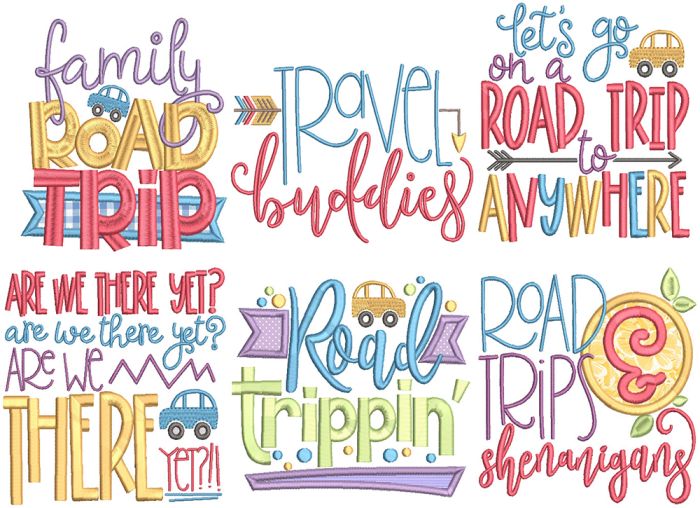 family
ROAD
TRIP
TRAVEL
buddies
let's go
on a
ROAD TRIP
to
ANYWHERE
ARE WE THERE YET?
are we there yet?
ARE WE
THERE
YET?!!
Road
trippin'
ROAD
TRIPS &
shenanigans